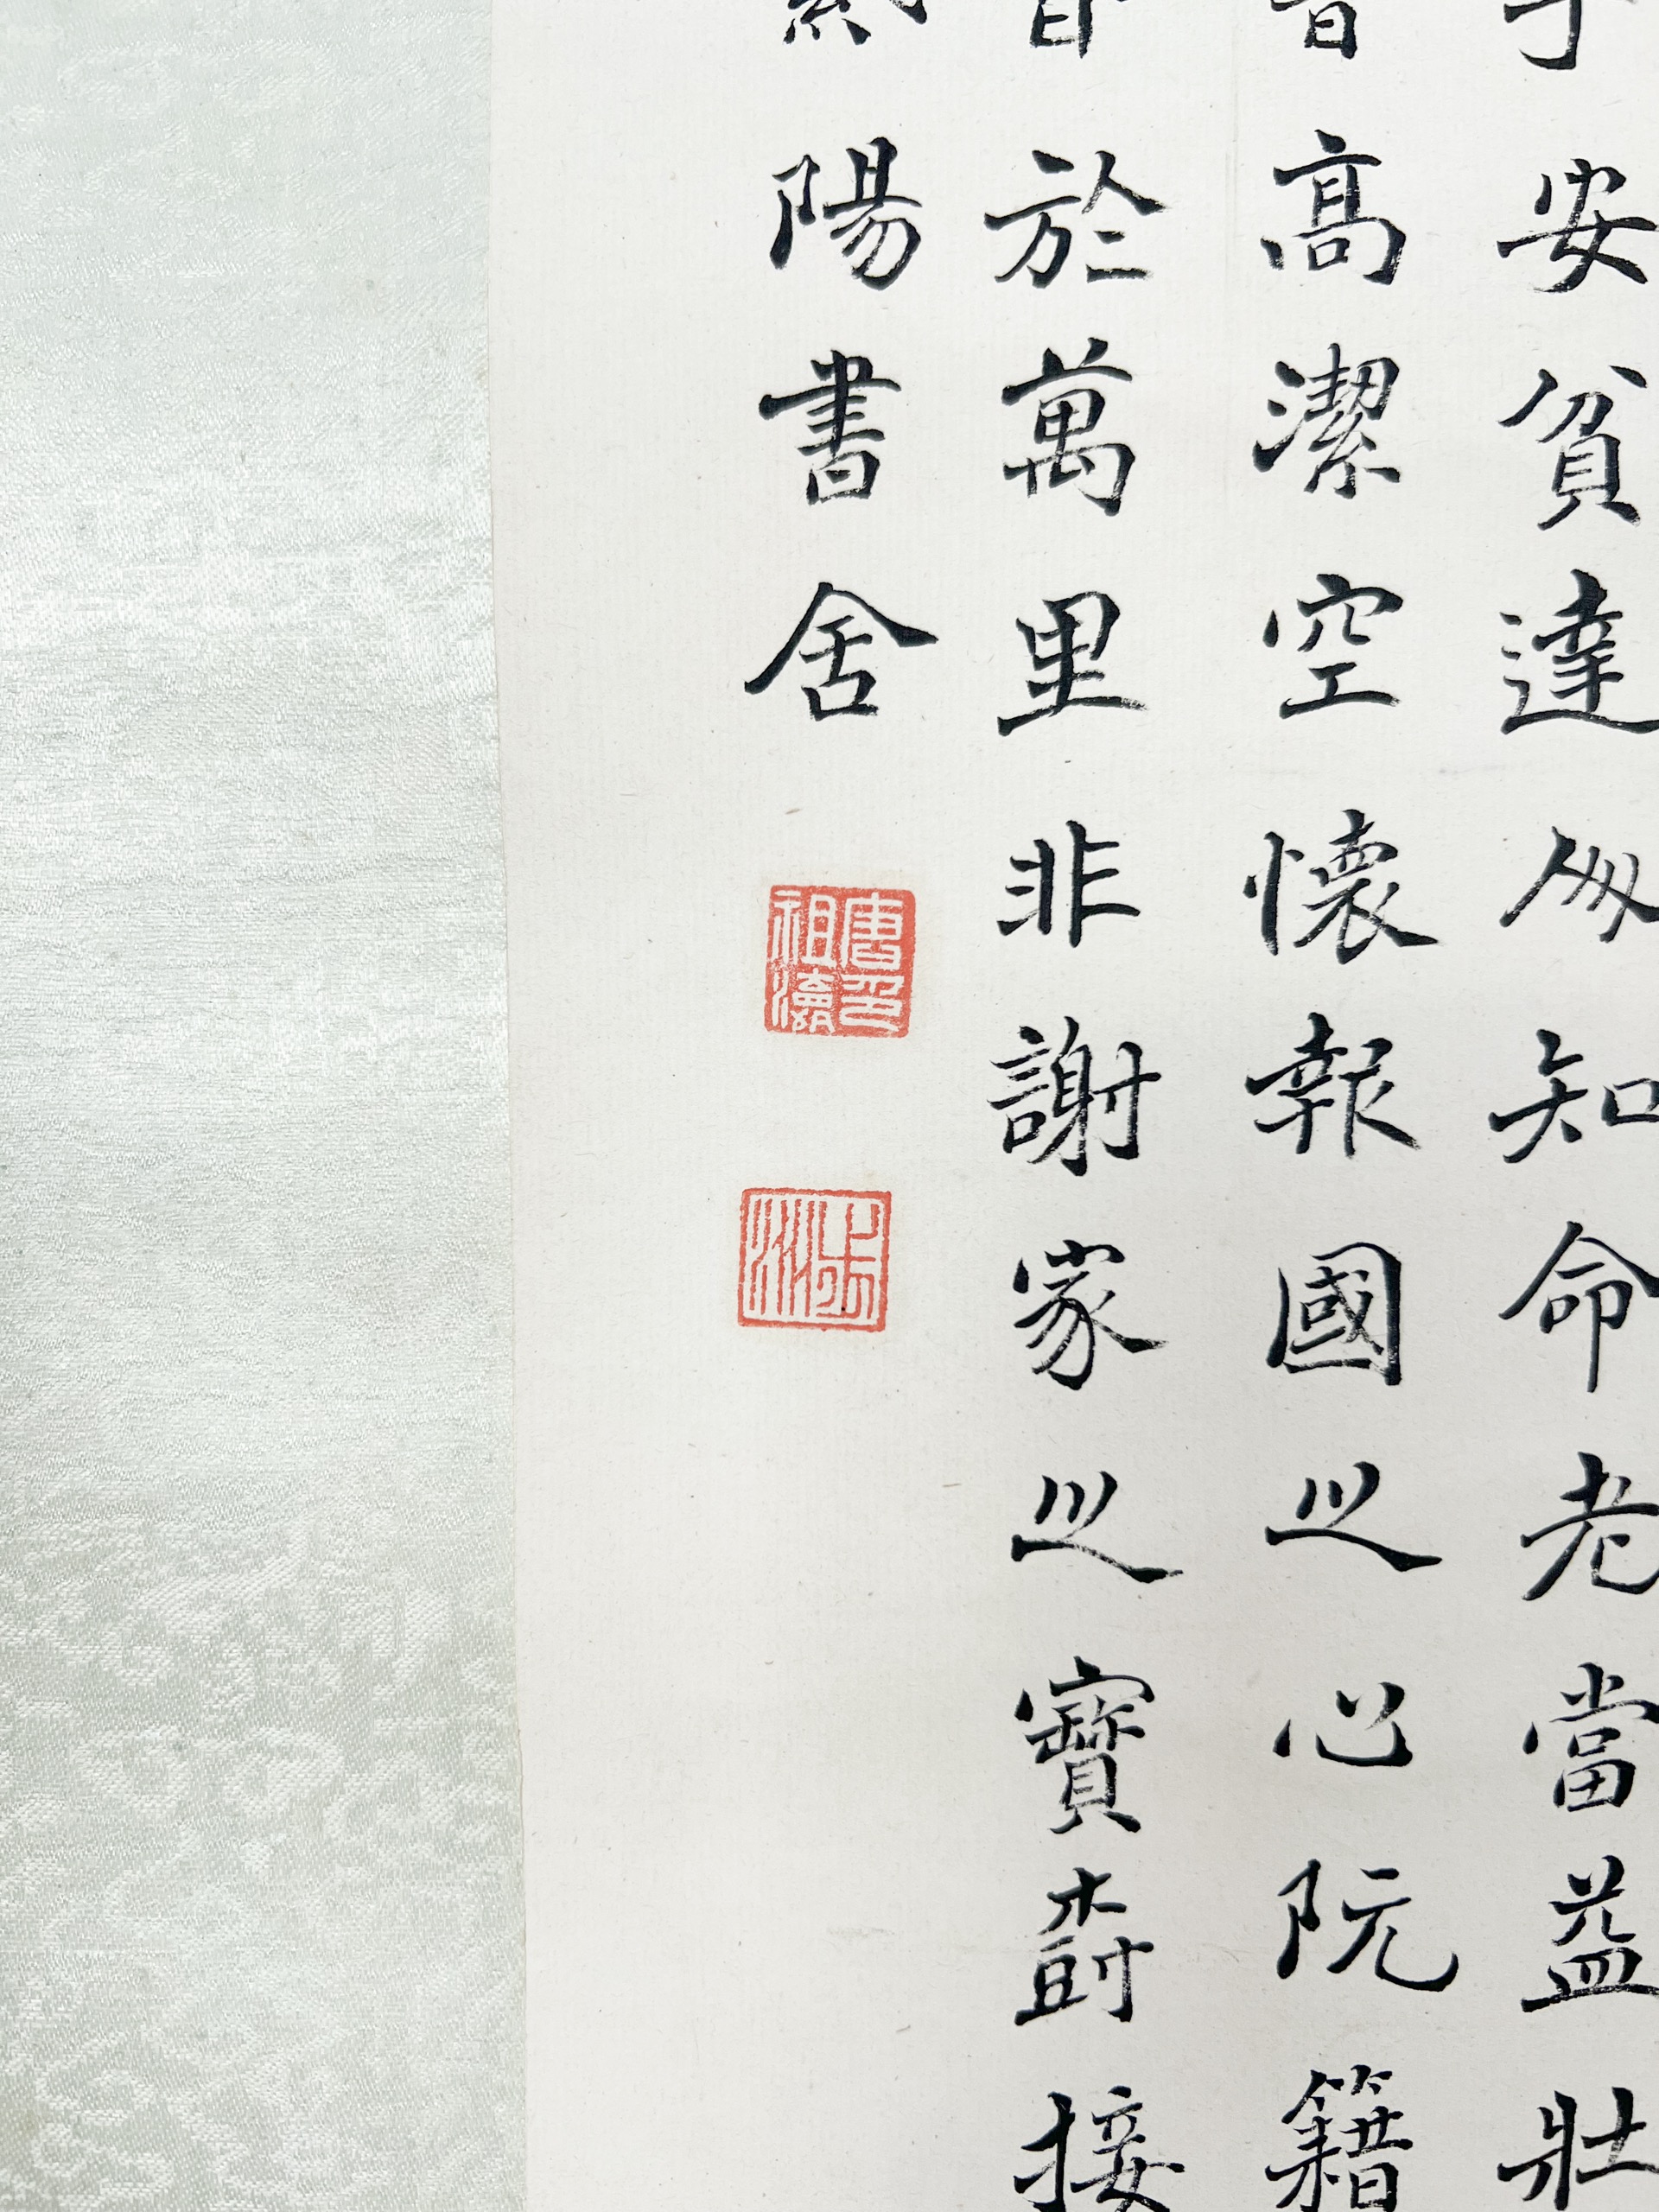 安貧達人知命老當益壯
高潔空懷報國之心阮籍
於萬里非謝家之寶樹接
陽書舍
唐印祖瀛
步洲